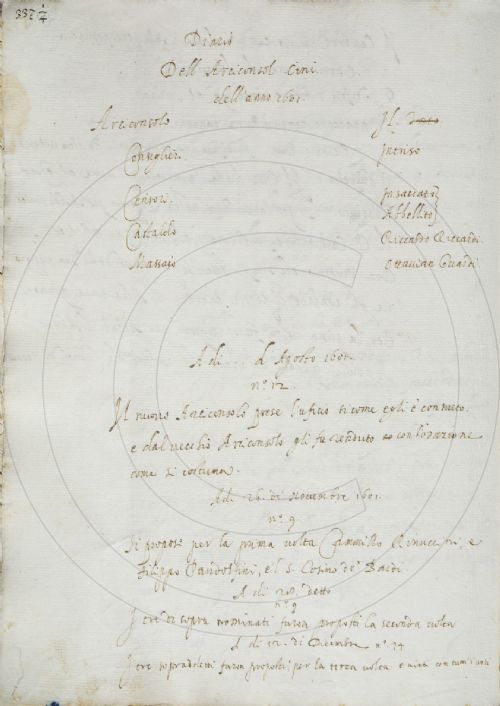 Diario
Dell'Arciconsol Cini.
dell'anno 1601.
Arciconsolo Il
Consiglieri. Intriso
Censori. Insaccato
Abbellito
Castaldo Riccardo Riccardi.
Massaio Ottavian
A di ... d'Agosto 1601.
n.º 12.
Il nuovo Arciconsolo prese l'ufizio si come egli è consueto.
e dal vecchio Arciconsolo gli fu renduto con l'orazione
come si costuma.
A di 26. di novembre 1601.
n.º 9
Si propose per la prima volta Cammillo Rinuccini, e
Filippo Pandolfini, e'l S. Cosimo de' Bardi.
A di 28. detto
n.º 9
I tre di sopra nominati furon proposti la seconda volta
A di 12. di Dicembre n.º 14
I tre sopradetti furon proposti per la terza volta e